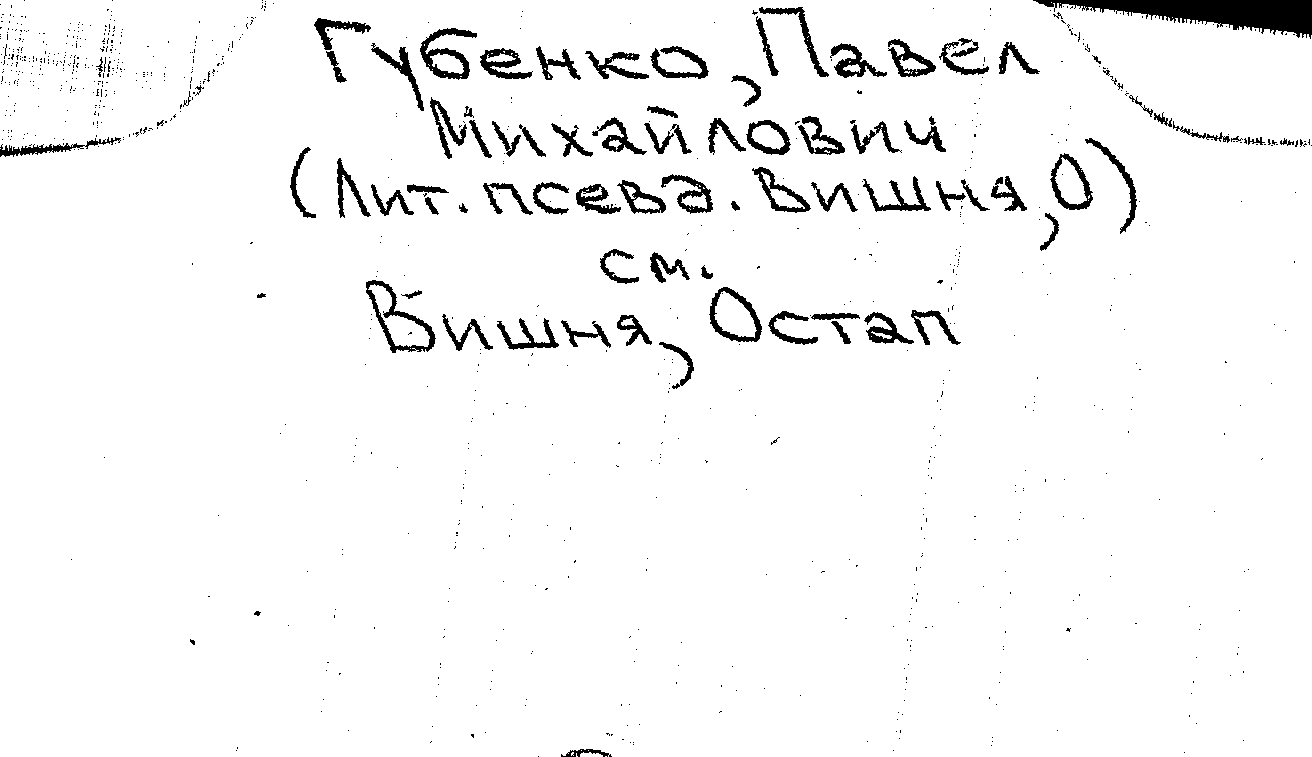 Губенко, Павел
Михайлович
(Лит. псевд. Вишня, О)
см.
Вишня, Остап